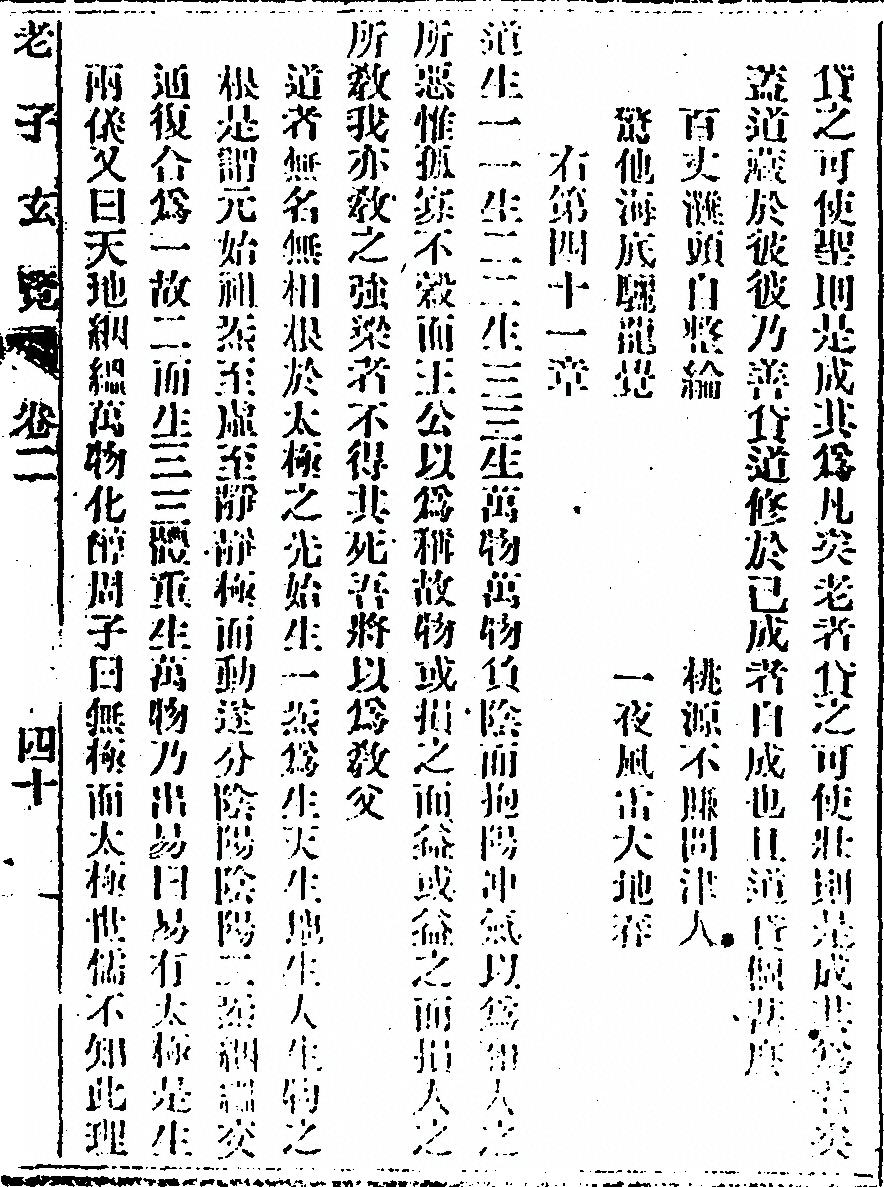 貸之可使聖則是成其爲凡矣老者貸之可使壯則是成其爲矣
蓋道藏於彼彼乃善貸道修於己成者自成也且道貸個甚麽
百丈灘頭自整綸　桃源不賺問津人
驚他海底驪龍覺　一夜風雷大地春
右第四十一章
道生一一生二二生三三生萬物萬物負陰而抱陽冲氣以爲和人之
所惡惟孤寡不穀而王公以爲稱故物或損之而益或益之而損人之
所敎我亦敎之強梁者不得其死吾將以爲敎父
道者無名無相根於太極之先始生一炁爲生天生地生人生物之
根是謂元始祖炁至虛至靜靜極而動遂分陰陽陰陽二炁絪縕交
通復合爲一故二而生三三體重生萬物乃出易曰易有太極是生
兩儀又曰天地絪縕萬物化醇周子曰無極而太極世儒不知此理
老子玄覽　卷二　四十